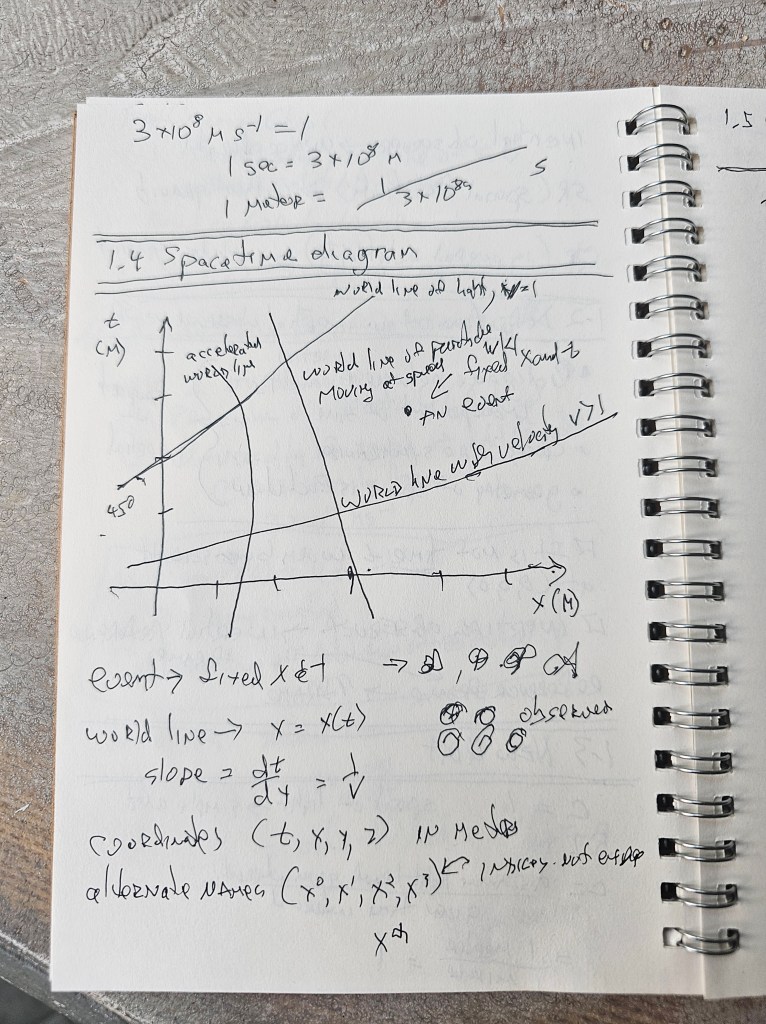 3×10⁸ M s⁻¹ = 1
1 sec = 3×10⁸ M
1 Meter = 1/3×10⁸ s
1.5
1.4 Spacetime diagram
world line of light, v=1
t
(M)
accelerated
world line
world line of particle
moving at speed v<1
fixed x and t
AN event
45°
WORLD line with velocity v>1
X (M)
event → fixed x & t →
world line → x = x(t) observer
slope = dt/dx = 1/v
coordinates (t, x, y, z) IN Meters
alternate NAMES (x⁰, x¹, x², x³) ← indices. not